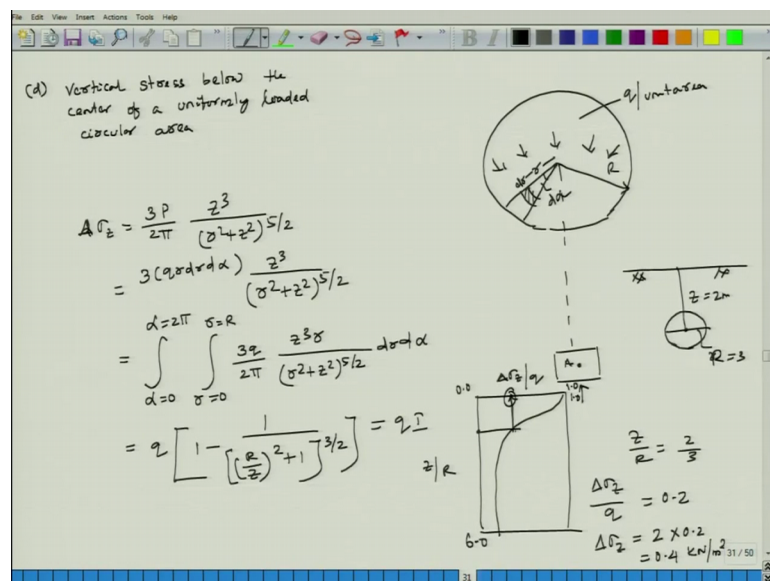 File Edit View Insert Actions Tools Help
B I
(d) Vertical stress below the
center of a uniformly loaded
circular area
q/unit area
dr
r
R
dα
Δσz = 3P/2π z³/(r²+z²)^5/2
= 3(qrdrdα) z³/(r²+z²)^5/2
= ∫α=0^α=2π ∫r=0^r=R 3q/2π z³r/(r²+z²)^5/2 drdα
= q [1 - 1/[(R/z)²+1]^3/2] = qI
z = 2m
R = 3
A
Δσz/q
0.0
1.0
1.0
z/R
6.0
z/R = 2/3
Δσz/q = 0.2
Δσz = 2 × 0.2
= 0.4 KN/m²
31/50
31